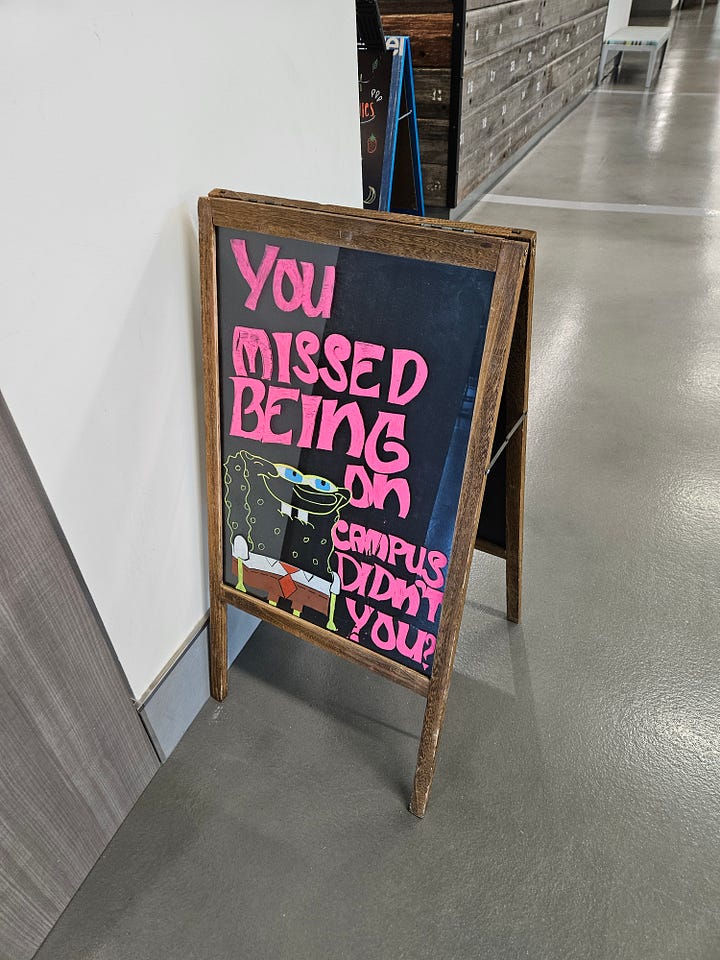 YOU
MISSED
BEING
ON
CAMPUS
DIDN'T
YOU?